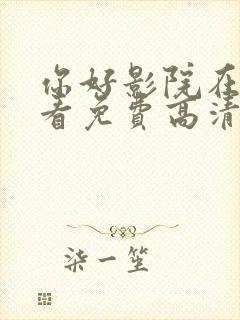 你好影院在
看免费高清
柒一笙